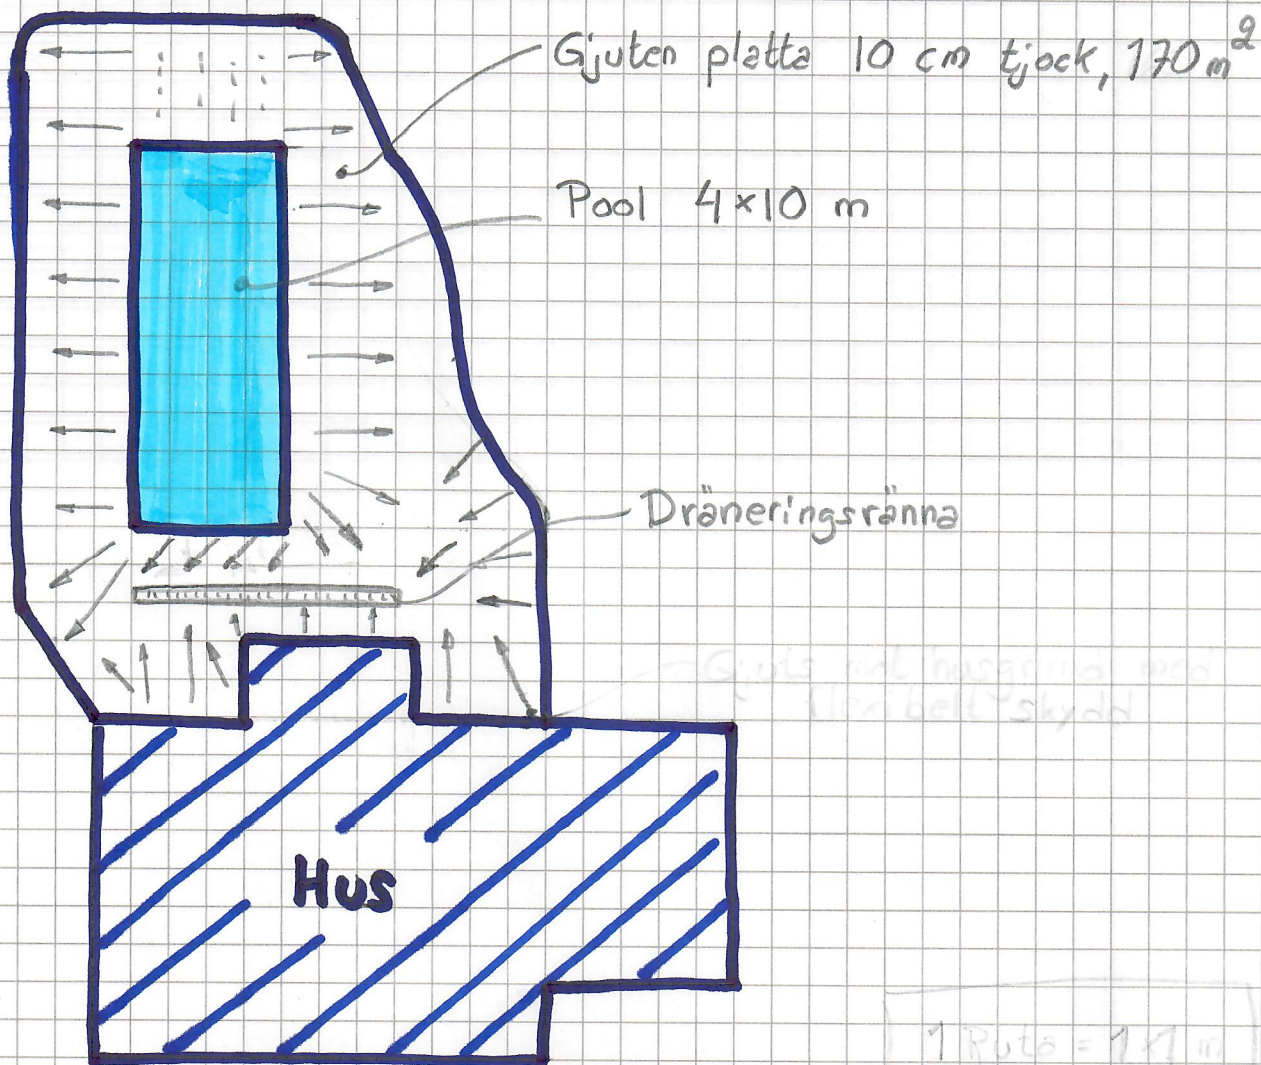 Gjuten platta 10 cm tjock, 170 m²
Pool 4×10 m
Dräneringsränna
Gjuts mot husgrund med
flexibelt skydd
Hus
1 Ruta = 1×1 m